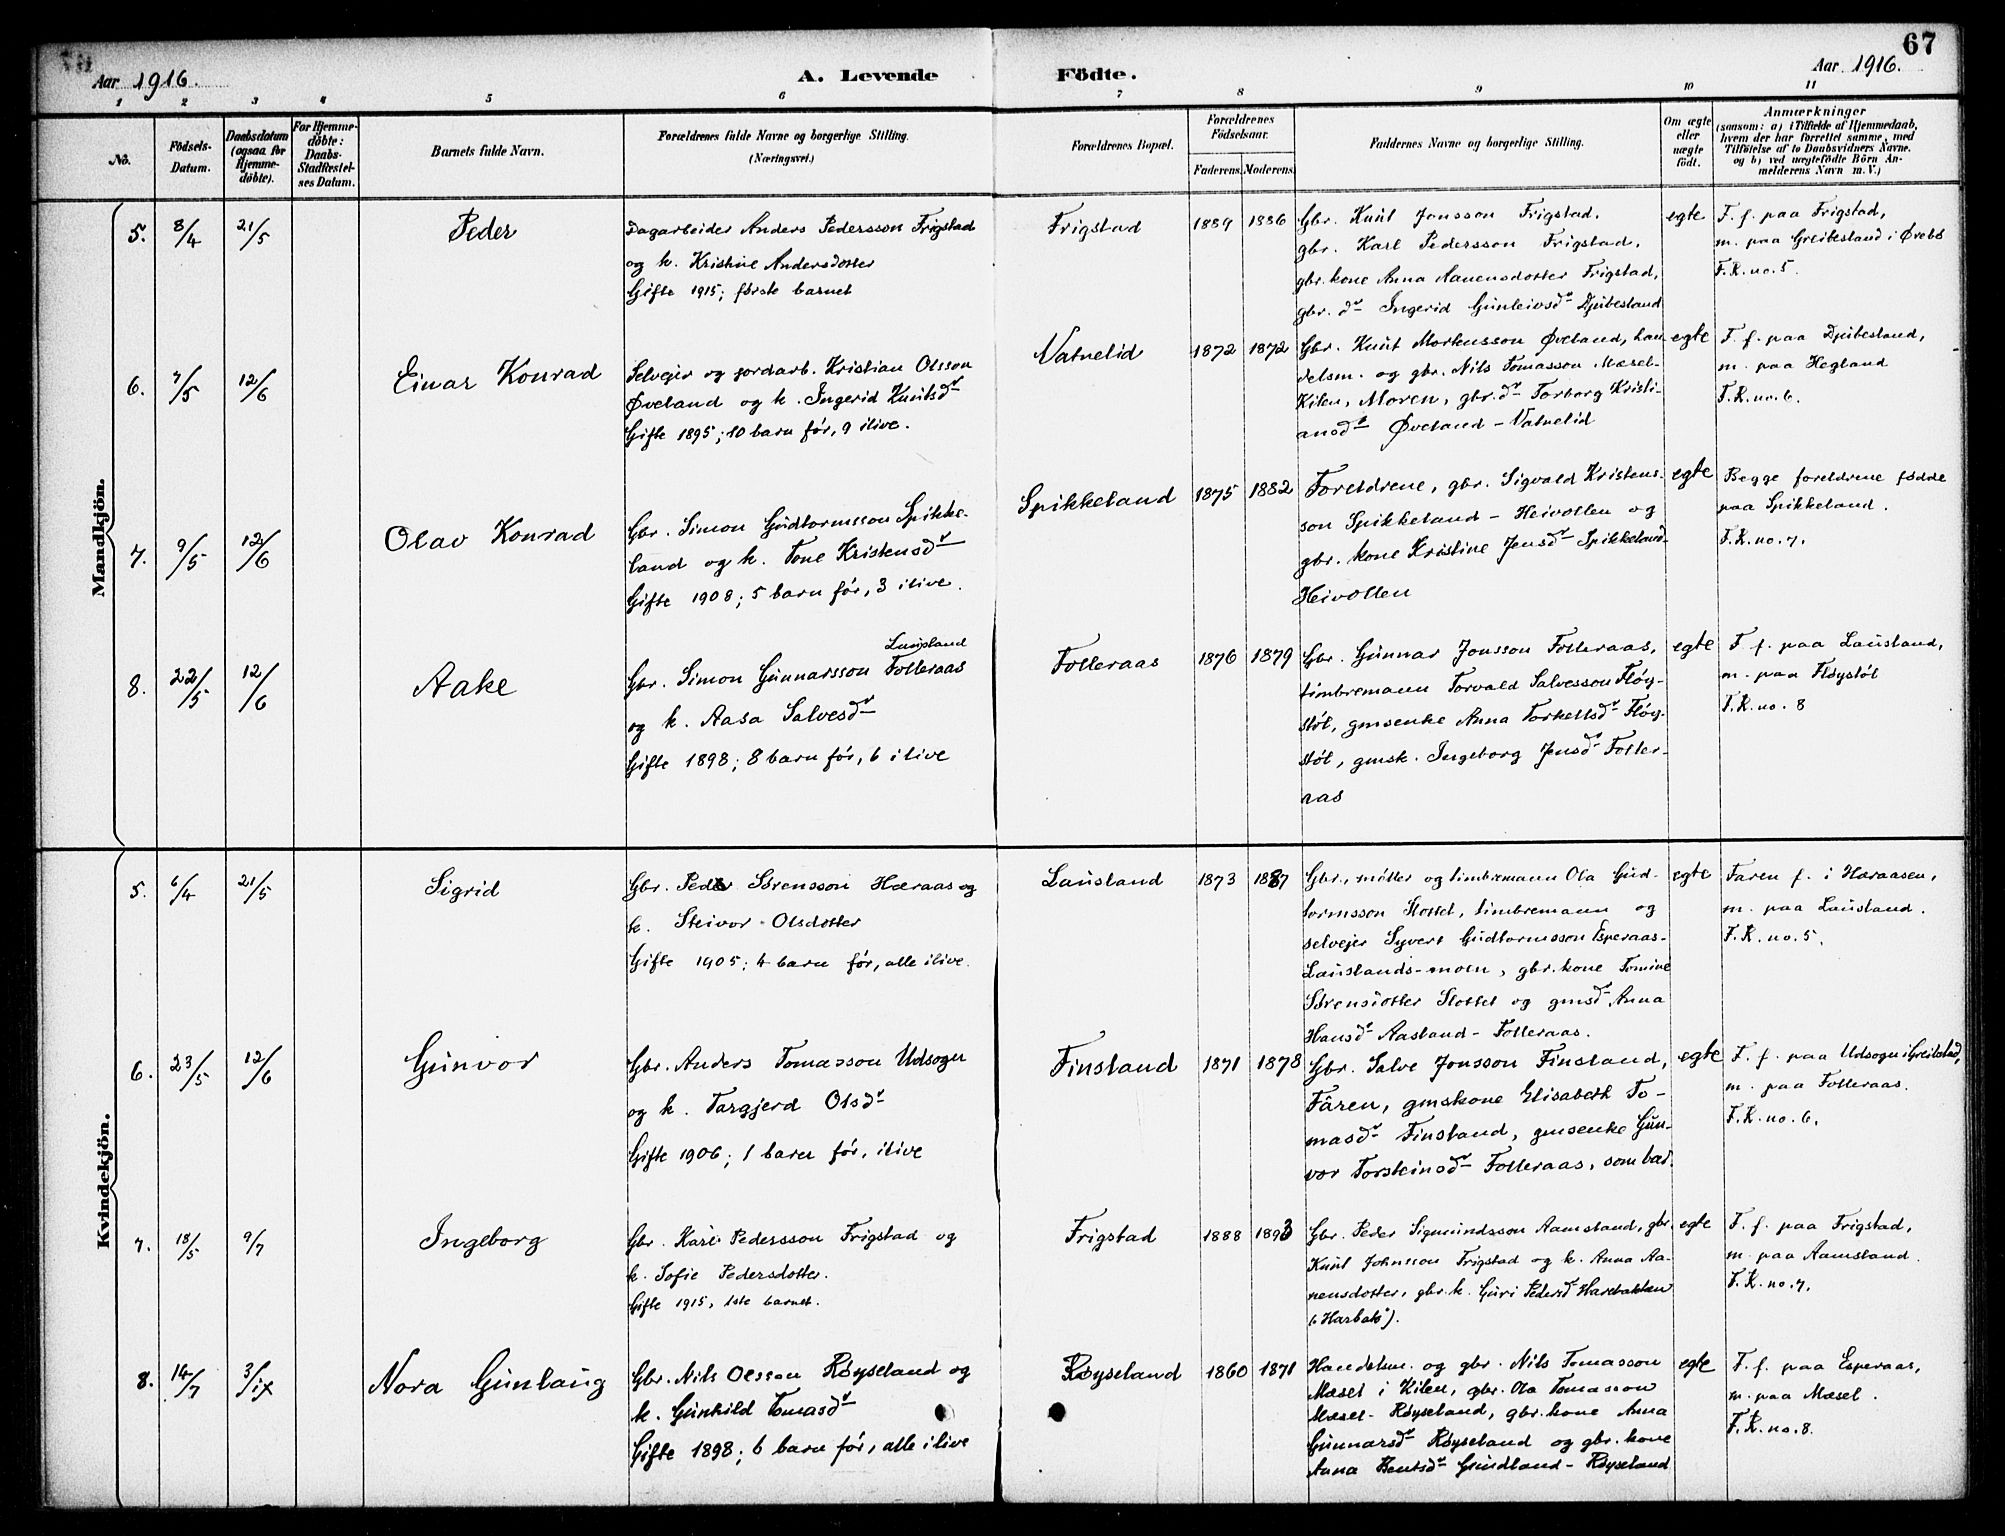 67
Aar 1916.
A. Levende Födte.
Aar 1916.
1 2 3 4 5 6 7 8 9 10 11
No.
Födsels-Datum.
Daabsdatum (ogsaa for Hjemme-döbte).
For Hjemme-döbte: Daabs-Stadfæstel-ses Datum.
Barnets fulde Navn.
Forældrenes fulde Navne og borgerlige Stilling.
(Næringsvei.)
Forældrenes Bopæl.
Forældrenes Födselsaar.
Faderens. Moderens.
Faddernes Navne og borgerlige Stilling.
Om ægte eller uægte födt.
Anmærkninger
(saasom: a) i Tilfælde af Hjemmedaab,
hvem der har forrettet samme, med
Tilföielse af to Daabsvidners Navne.
og b) ved uægtefödte Börn An-
melderens Navn m. V.)
Mandkjön.
5. 8/4 21/5 Peder
Dagarbeider Anders Pedersson Frigstad
og k. Kristine Andersdotter
Gifte 1915; første barnet
Frigstad 1889 1886
Gbr. Knut Jonsson Frigstad,
gbr. Karl Pedersson Frigstad,
gbr. kone Anna Aanensdotter Frigstad,
gbr. dr Ingerid Gunleivsdr Djubesland
egte
F. f. paa Frigstad,
m. paa Greibesland i Øvebø
F.R. no. 5.
6. 7/5 12/6 Einar Konrad
Selvejer og jordarb. Kristian Olsson
Øveland og k. Ingerid Knutsdr
Gifte 1895; 10 barn før, 9 ilive.
Vatnelid 1872 1872
Gbr. Knut Mortensson Øveland, han-
delsm. og gbr. Nils Tomasson Mæsel-
Kilen, Moren, gbr. dr Torborg Kristi-
ansdr Øveland - Vatnelid
egte
F. f. paa Djubesland,
m. paa Hegland
F.R. no. 6.
7. 9/5 12/6 Olav Konrad
Gbr. Simon Gudtormsson Spikke-
land og k. Tone Kristensdr
Gifte 1908; 5 barn før, 3 ilive.
Spikkeland 1875 1882
Foreldrene, gbr. Sigvald Kristens-
son Spikkeland - Heivollen og
gbr. kone Kristine Jensdr Spikkeland-
Heivollen
egte
Begge foreldrene fødde
paa Spikkeland.
F.R. no. 7.
8. 22/5 12/6 Aake
Lausland
Gbr. Simon Gunnarsson Folleraas
og k. Aasa Salvesdr
Gifte 1898; 8 barn før, 6 ilive
Folleraas 1876 1879
Gbr. Gunnar Jonsson Folleraas,
timbremann Torvald Salvesson Fløy-
støl, gmsenke Anna Torkellsdr Fløy-
støl, gmsk. Ingeborg Jensdr Foller-
aas
egte
F. f. paa Lausland,
m. paa Fløystøl
F.R. no. 8
Kvindekjön.
5. 6/4 21/5 Sigrid
Gbr. Peder Sørensson Høraas og
k. Steivor Olsdotter
Gifte 1905; 4 barn før, alle ilive.
Lausland 1873 1887
Gbr., møller og timbremann Ola Gud-
tormsson Slottet, timbremann og
selvejer Syvert Gudtormsson Esperaas-
Lauslands-moen, gbr. kone Tomine
Sørensdotter Slottet og gmsdr Anna
Hansdr Aasland - Folleraas.
egte
Faren f. i Haraasen,
m. paa Lausland.
F.R. no. 5.
6. 23/5 12/6 Gunvor
Gbr. Anders Tomasson Udsogn
og k. Targjerd Olsdr
Gifte 1906; 1 barn før, ilive
Finsland 1871 1878
Gbr. Salve Jonsson Finsland,
Faren, gmskone Elisabeth To-
masdr Finsland, gmsenke Gun-
vor Torsteinsdr Folleraas, som bar.
egte
F. f. paa Udsogn i Greibstad,
m. paa Folleraas.
F.R. no. 6.
7. 18/5 9/7 Ingeborg
Gbr. Karl Pedersson Frigstad og
k. Sofie Pedersdotter.
Gifte 1915, 1ste barnet.
Frigstad 1888 1893
Gbr. Peder Sigmundsson Aamsland, gbr
Knut Johnsson Frigstad og k. Anna Aa-
nensdotter, gbr. k. Guri Pedersdr Harebakken
(Harbak).
egte
F. f. paa Frigstad,
m. paa Aamsland.
F.R. no. 7.
8. 14/7 3/ix Nora Gunlaug
Gbr. Nils Olsson Røyseland og
k. Gunhild Tomasdr
Gifte 1898; 6 barn før, alle ilive
Røyseland 1860 1871
Handelsm. og gbr. Nils Tomasson
Mæsel i Kilen, gbr. Ola Tomasson
Mæsel - Røyseland, gbr. kone Anna
Gunnarsdr Røyseland og gbr. kone
Anna Bentsdr Grundland - Røyseland
egte
F. f. paa Esperaas,
m. paa Mæsel.
F.R. no. 8.